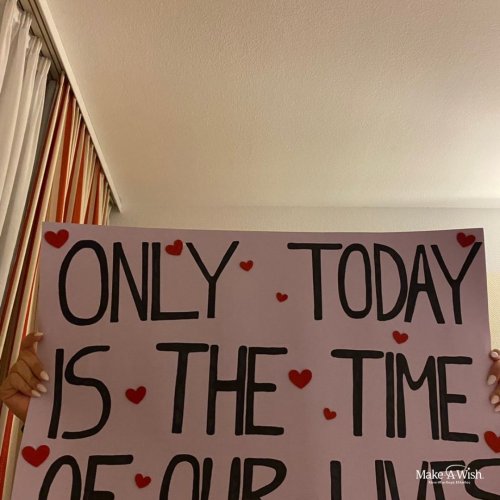 ONLY TODAY
IS THE TIME
OF OUR LIVES
Make-A-Wish